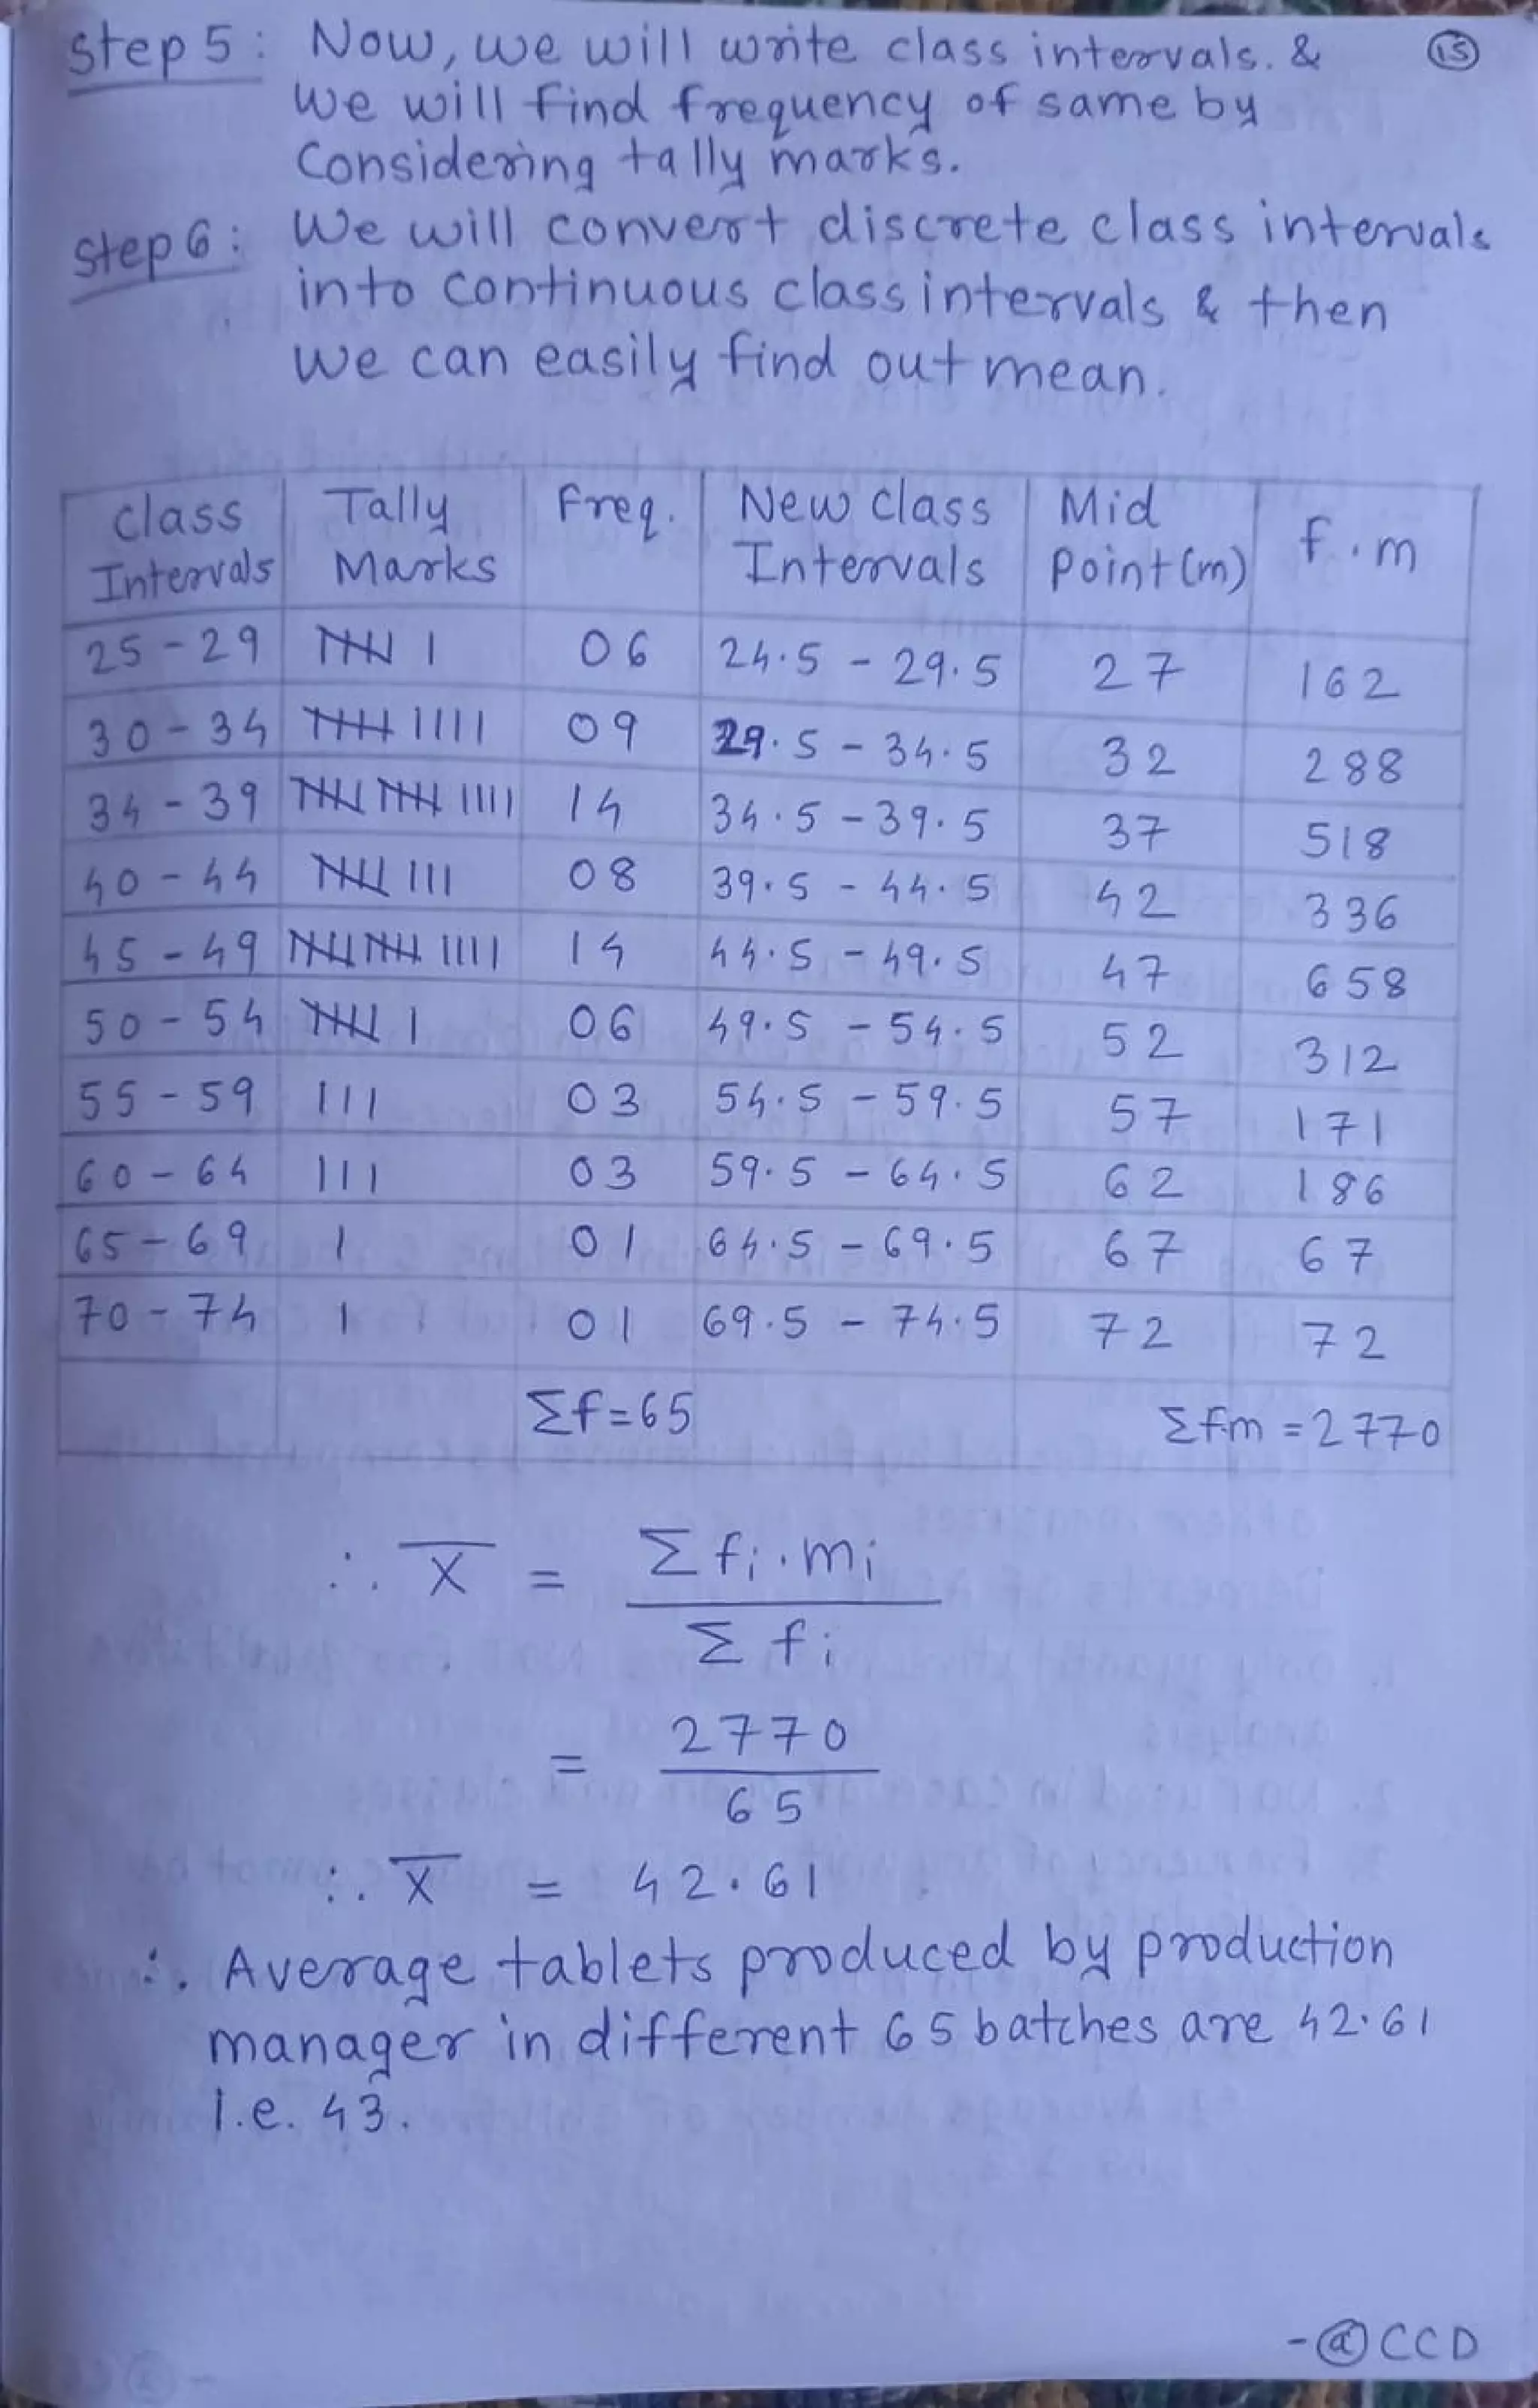 Step 5: Now, we will write class intervals. & 15
we will find frequency of same by
Considering tally marks.
Step 6: We will convert discrete class intervals
into continuous class intervals & then
we can easily find out mean.
Class Intervals | Tally Marks | Freq. | New Class Intervals | Mid Point (m) | f.m
25-29 | 𝍸 | | 06 | 24.5 - 29.5 | 27 | 162
30-34 | 𝍸 |||| | 09 | 29.5 - 34.5 | 32 | 288
34-39 | 𝍸 𝍸 |||| | 14 | 34.5 - 39.5 | 37 | 518
40-44 | 𝍸 ||| | 08 | 39.5 - 44.5 | 42 | 336
45-49 | 𝍸 𝍸 |||| | 14 | 44.5 - 49.5 | 47 | 658
50-54 | 𝍸 | | 06 | 49.5 - 54.5 | 52 | 312
55-59 | ||| | 03 | 54.5 - 59.5 | 57 | 171
60-64 | ||| | 03 | 59.5 - 64.5 | 62 | 186
65-69 | | | 01 | 64.5 - 69.5 | 67 | 67
70-74 | | | 01 | 69.5 - 74.5 | 72 | 72
Σf=65 Σfm = 2770
∴ X̄ = Σ fi . mi
Σ fi
= 2770
65
∴ X̄ = 42.61
∴ Average tablets produced by production
manager in different 65 batches are 42.61
I.e. 43.
-@CCD